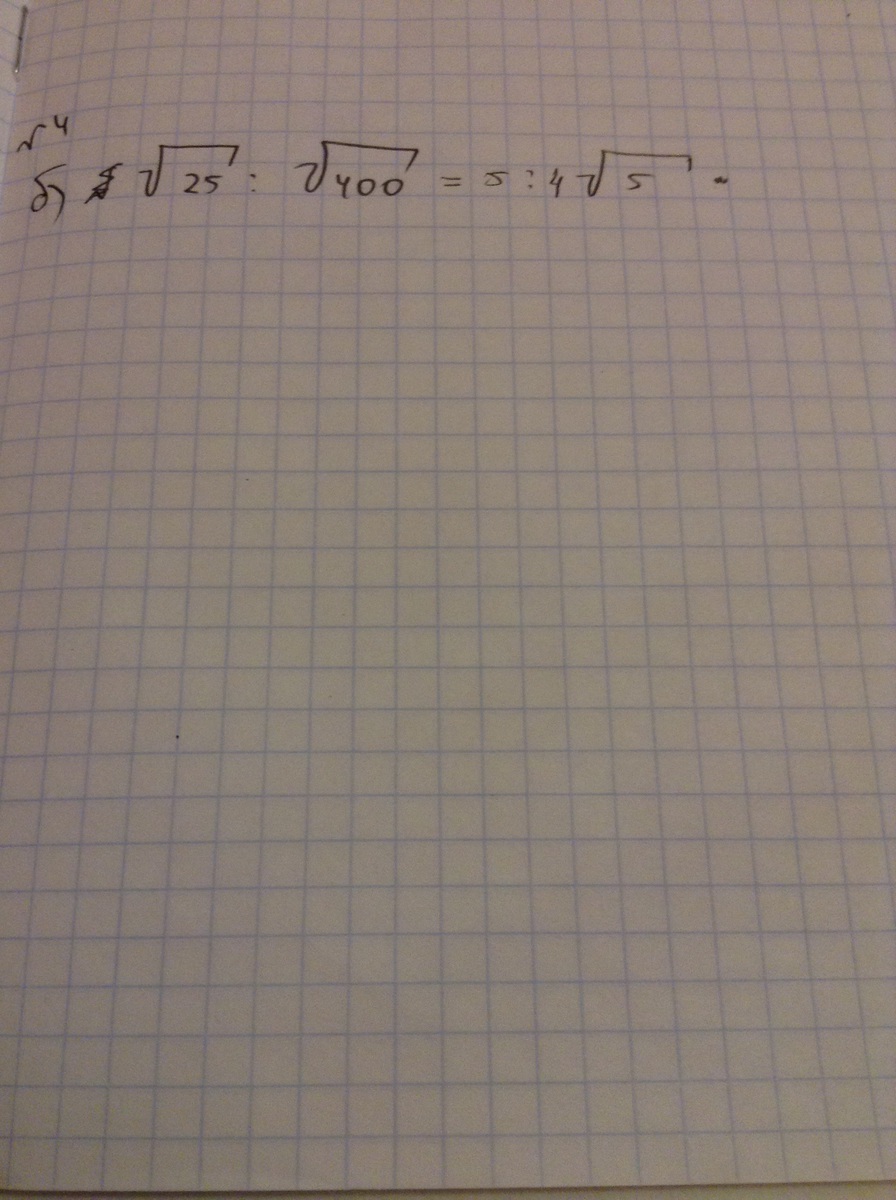 №4
б) √25 : √400 = 5 : 4√5 -